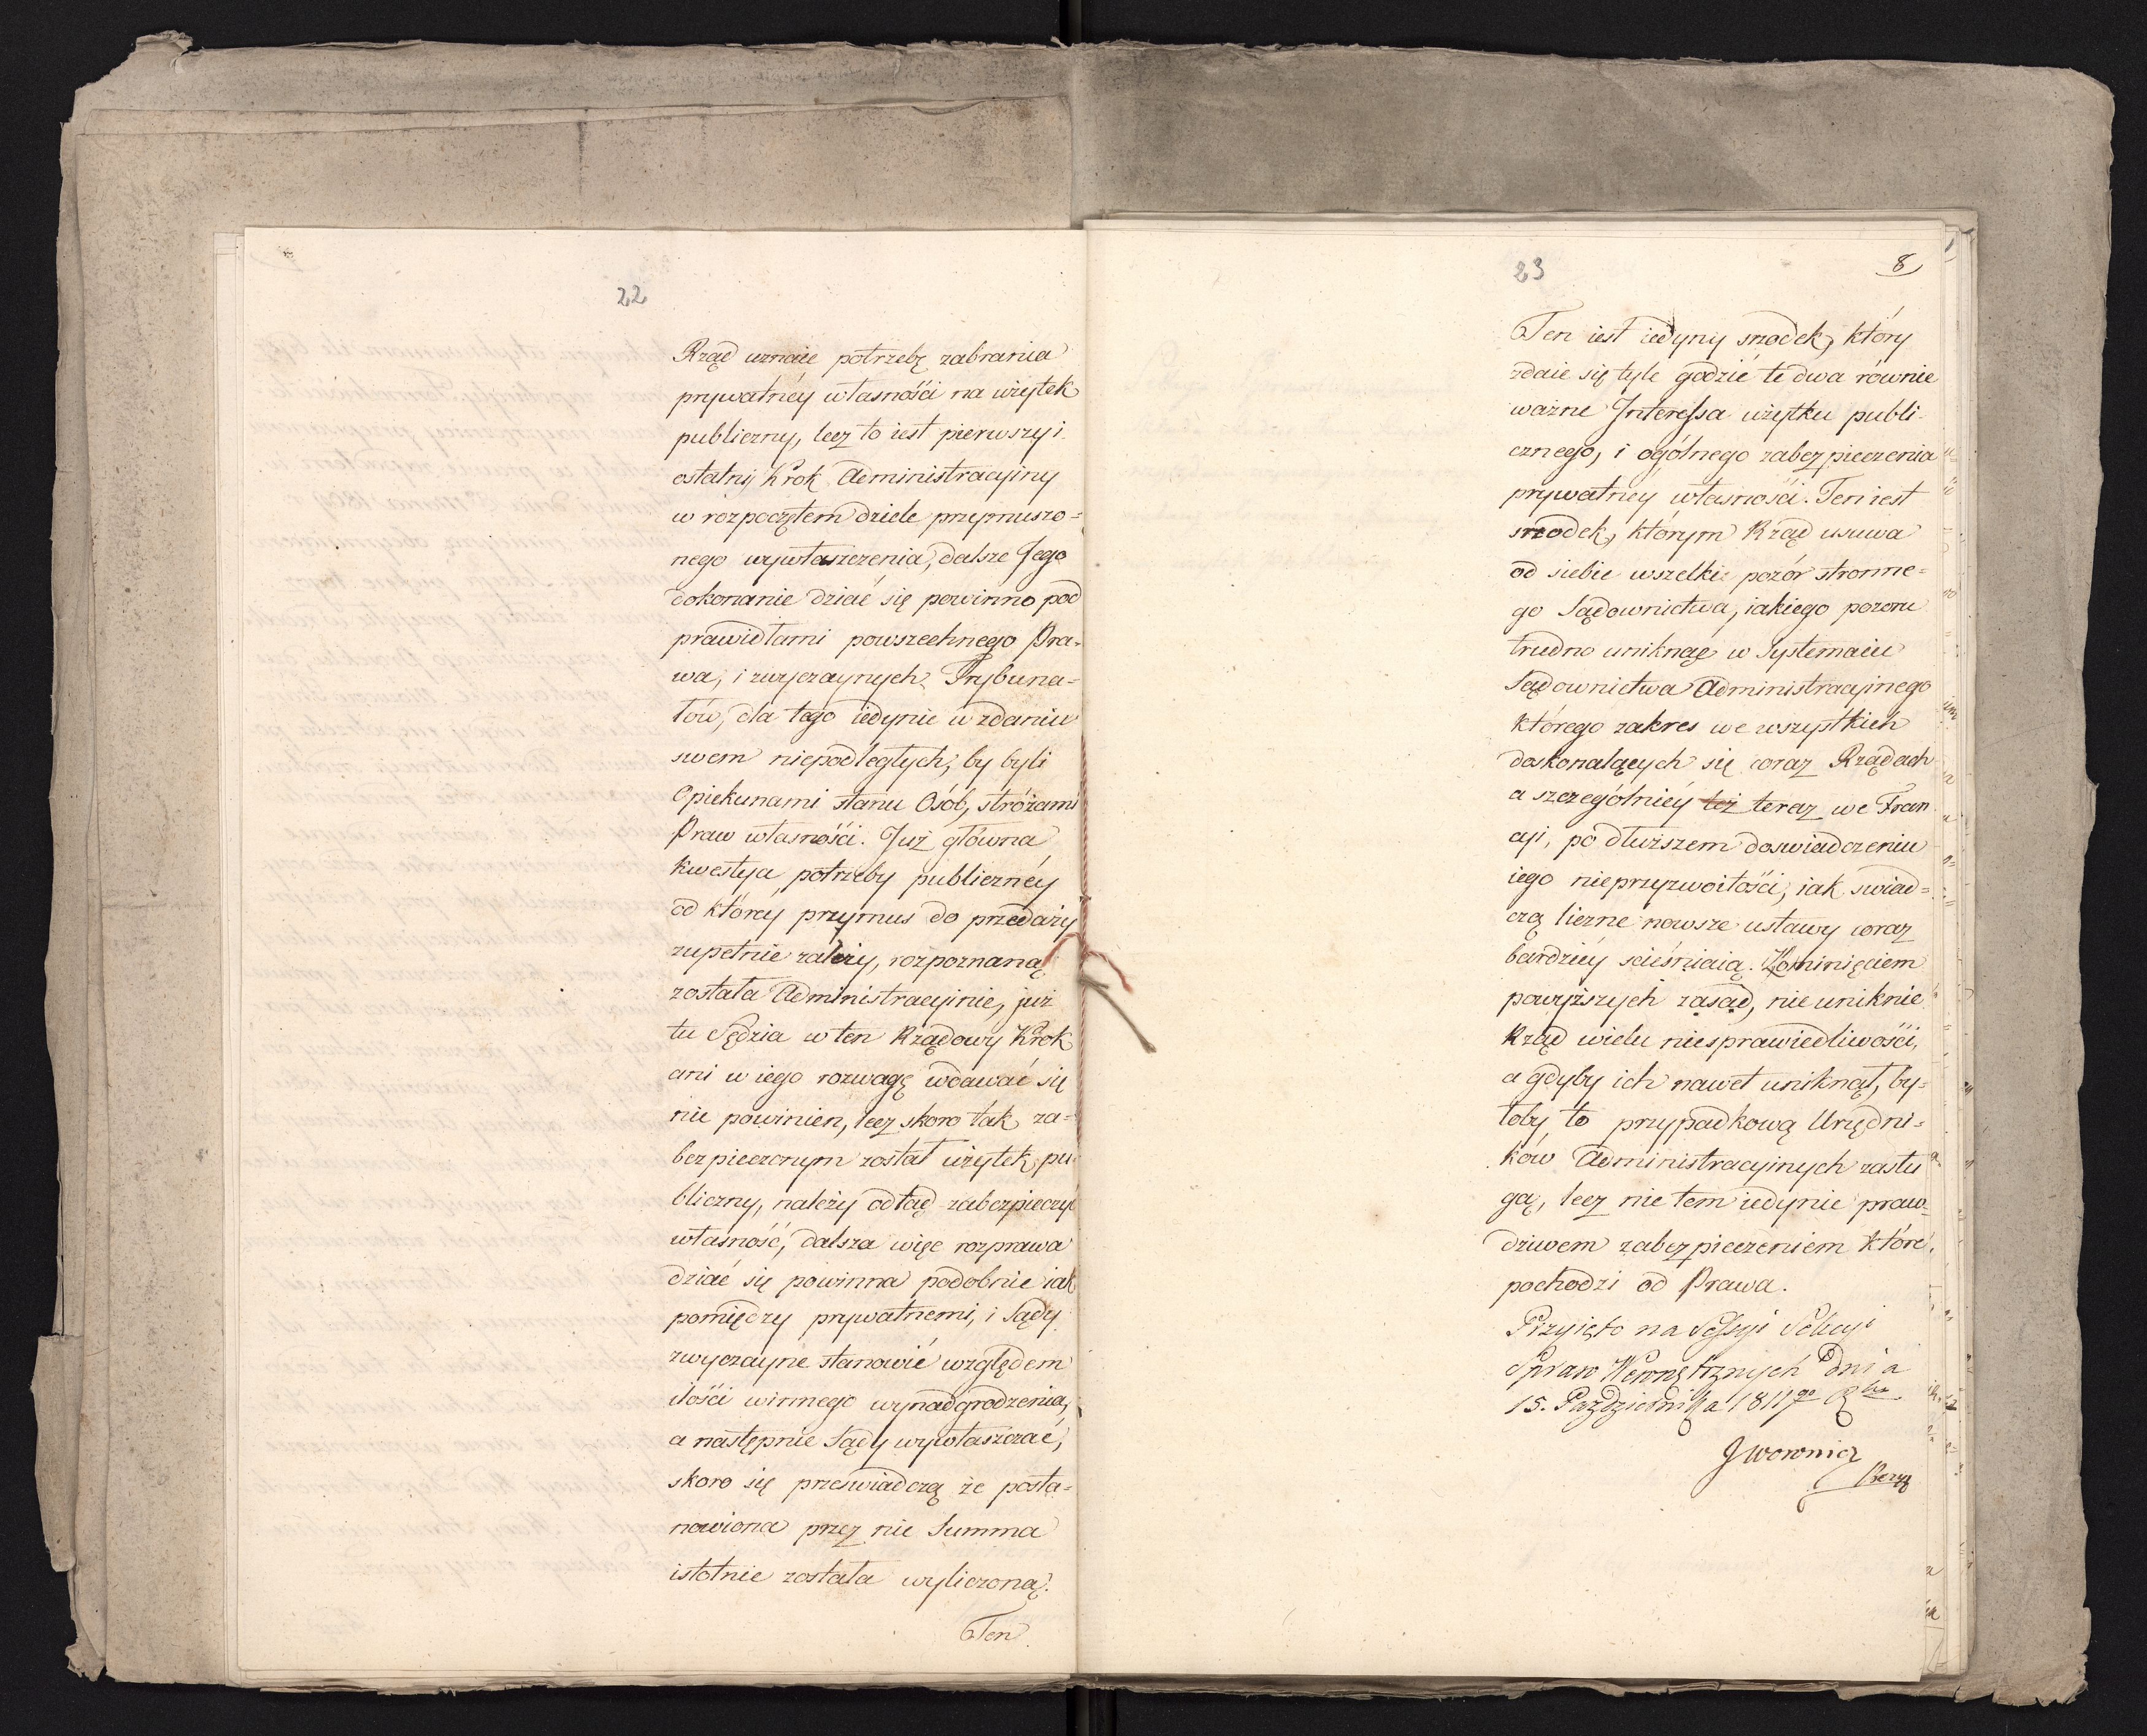 22
Rząd uznaie potrzebę zabrania
prywatnéy własności na użytek
publiczny, lecz to iest pierwszy i
ostatny Krok Administracyiny
w rozpoczętem dziele przymuszo=
nego wywłaszczenia, dalsze Jego
dokonanie dziać się powinno pod
prawidłami powszechnego Pra=
wa, i zwyczaynych Trybuna=
łów, dla tego iedynie w zdaniu
swem niepodległych, by byli
Opiekunami stanu Osób, stróżami
Praw własności. Już główna
kwestya potrzeby publicznéy
od któréy przymus do przedaży
zupełnie zależy, rozpoznaną
została Administracyinie, już
tu Sędzia w ten Rządowy Krok
ani w iego rozwagę wdawać się
nie powinien, lecz skoro tak za=
bezpieczonym został użytek pu=
bliczny, należy odtąd zabezpieczyć
własność, dalsza więc rozprawa
dziać się powinna podobnie iak
pomiędzy prywatnemi, i Sądy
zwyczayne stanowić względem
ilości winnego wynadgrodzenia,
a następnie Sądy wywłaszczać,
skoro się przeswiadczą że posta=
nowiona przez nie Summa
istotnie została wyliczoną.
Ten
23
8
Ten iest iedyny srzodek, który
zdaie się tyle godzić te dwa równie
ważne Interessa użytku publi=
cznego, i ogólnego zabezpieczenia
prywatnéy własności. Ten iest
srzodek, którym Rząd usuwa
od siebie wszelkie pozór stronne=
go Sądownictwa, iakiego pozoru
trudno uniknąć w Systemacie
Sądownictwa Administracyinego
którego zakres we wszystkich
doskonalących się coraz Rządach
a szczególniéy też teraz we Fran
cyi, po dłuższem doswiadczeniu
iego nieprzyzwoitości, iak swiad=
czą liczne nowsze ustawy coraz
bardziéy scieśniaią. Z ominięciem
powyższych zasad, nie uniknie
Rząd wielu niesprawiedliwości,
a gdyby ich nawet uniknął, by=
łoby to przypadkową Urzędni=
ków Administracyinych zasłu
gą, lecz nie tem iedynie praw=
dziwem zabezpieczeniem które
pochodzi od Prawa.
Przyięto na Sessyi Sekcyi
Spraw Wewnętrznych Dnia
15. Pazdziernika 1811go
JWoronicz